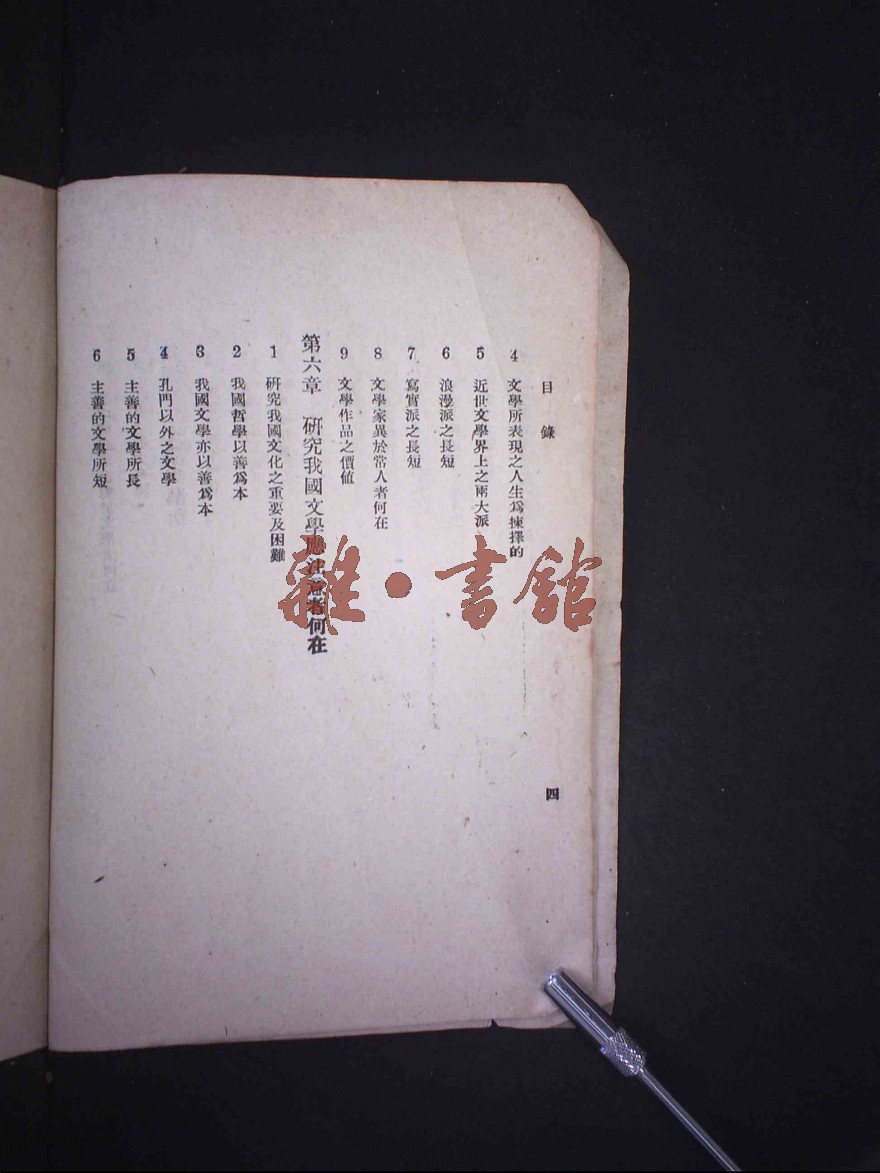 目錄
四
4 文學所表現之人生爲揀擇的
5 近世文學界上之兩大派
6 浪漫派之長短
7 寫實派之長短
8 文學家異於常人者何在
9 文學作品之價值
第六章 研究我國文學應注意者何在
1 研究我國文化之重要及困難
2 我國哲學以善爲本
3 我國文學亦以善爲本
4 孔門以外之文學
5 主善的文學所長
6 主善的文學所短
雜·書館